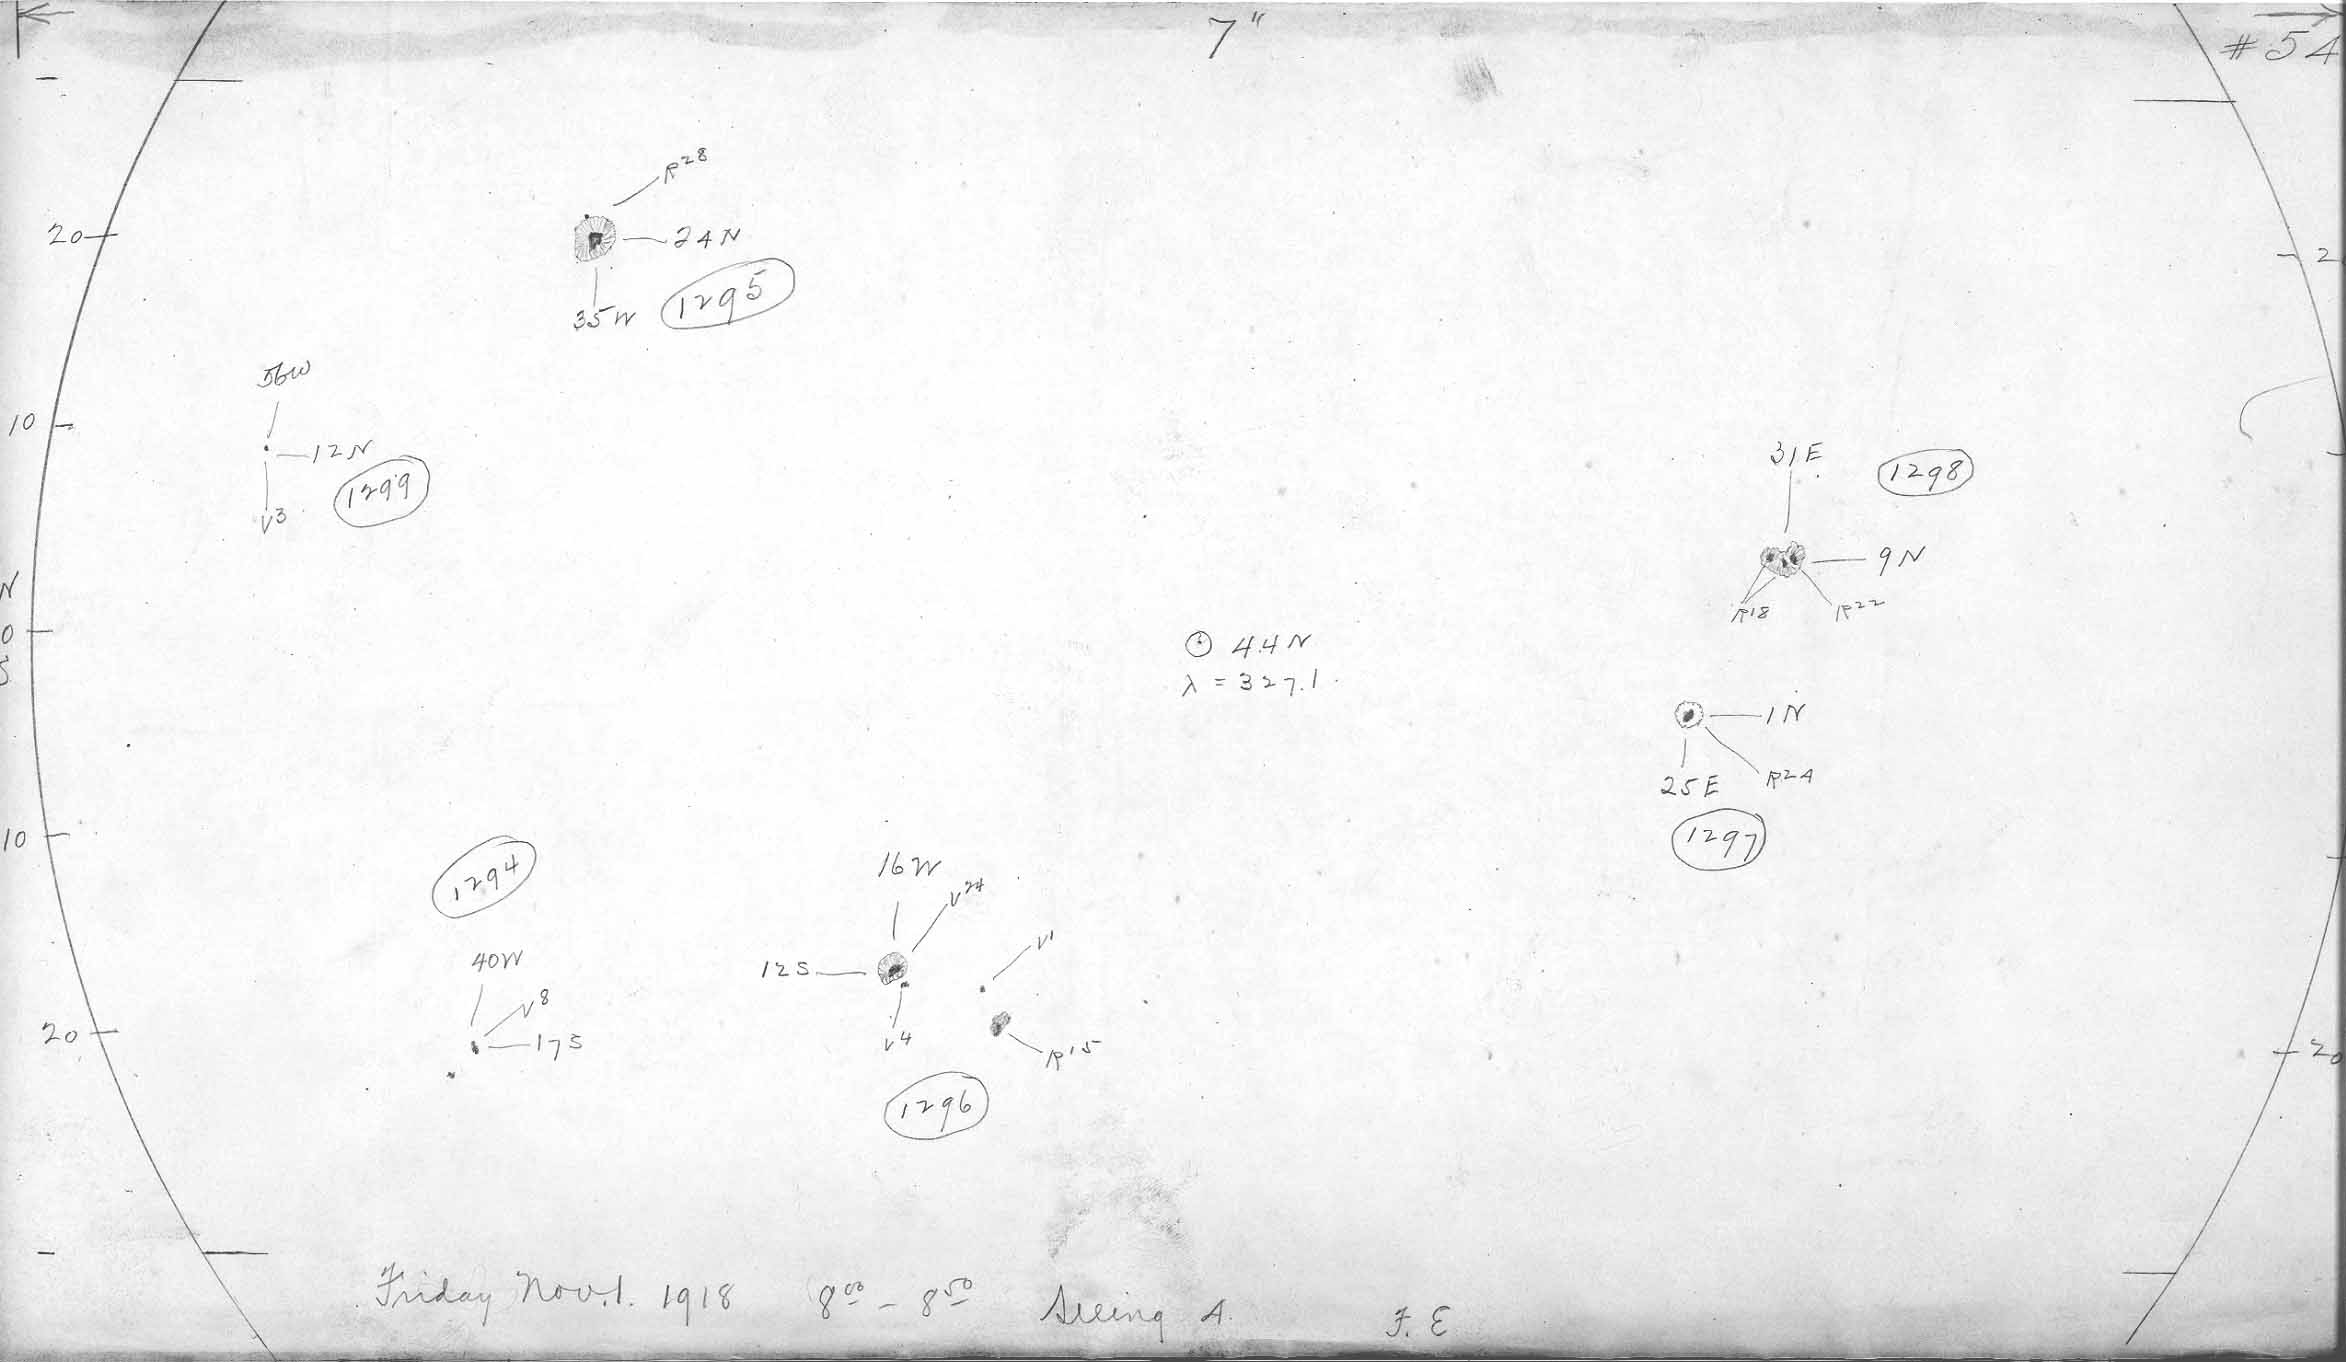 7"
#54
R28
20
24N
2
1295
35W
56W
10
12N
31E
1298
1299
V3
9N
N
R18
R22
0
4.4N
S
λ = 327.1
1N
25E
R24
10
1297
1294
16W
V24
40W
V1
12S
V8
20
17S
V4
R15
20
1296
Friday Nov. 1. 1918 8 00 - 8 50 Seeing 4 F. E